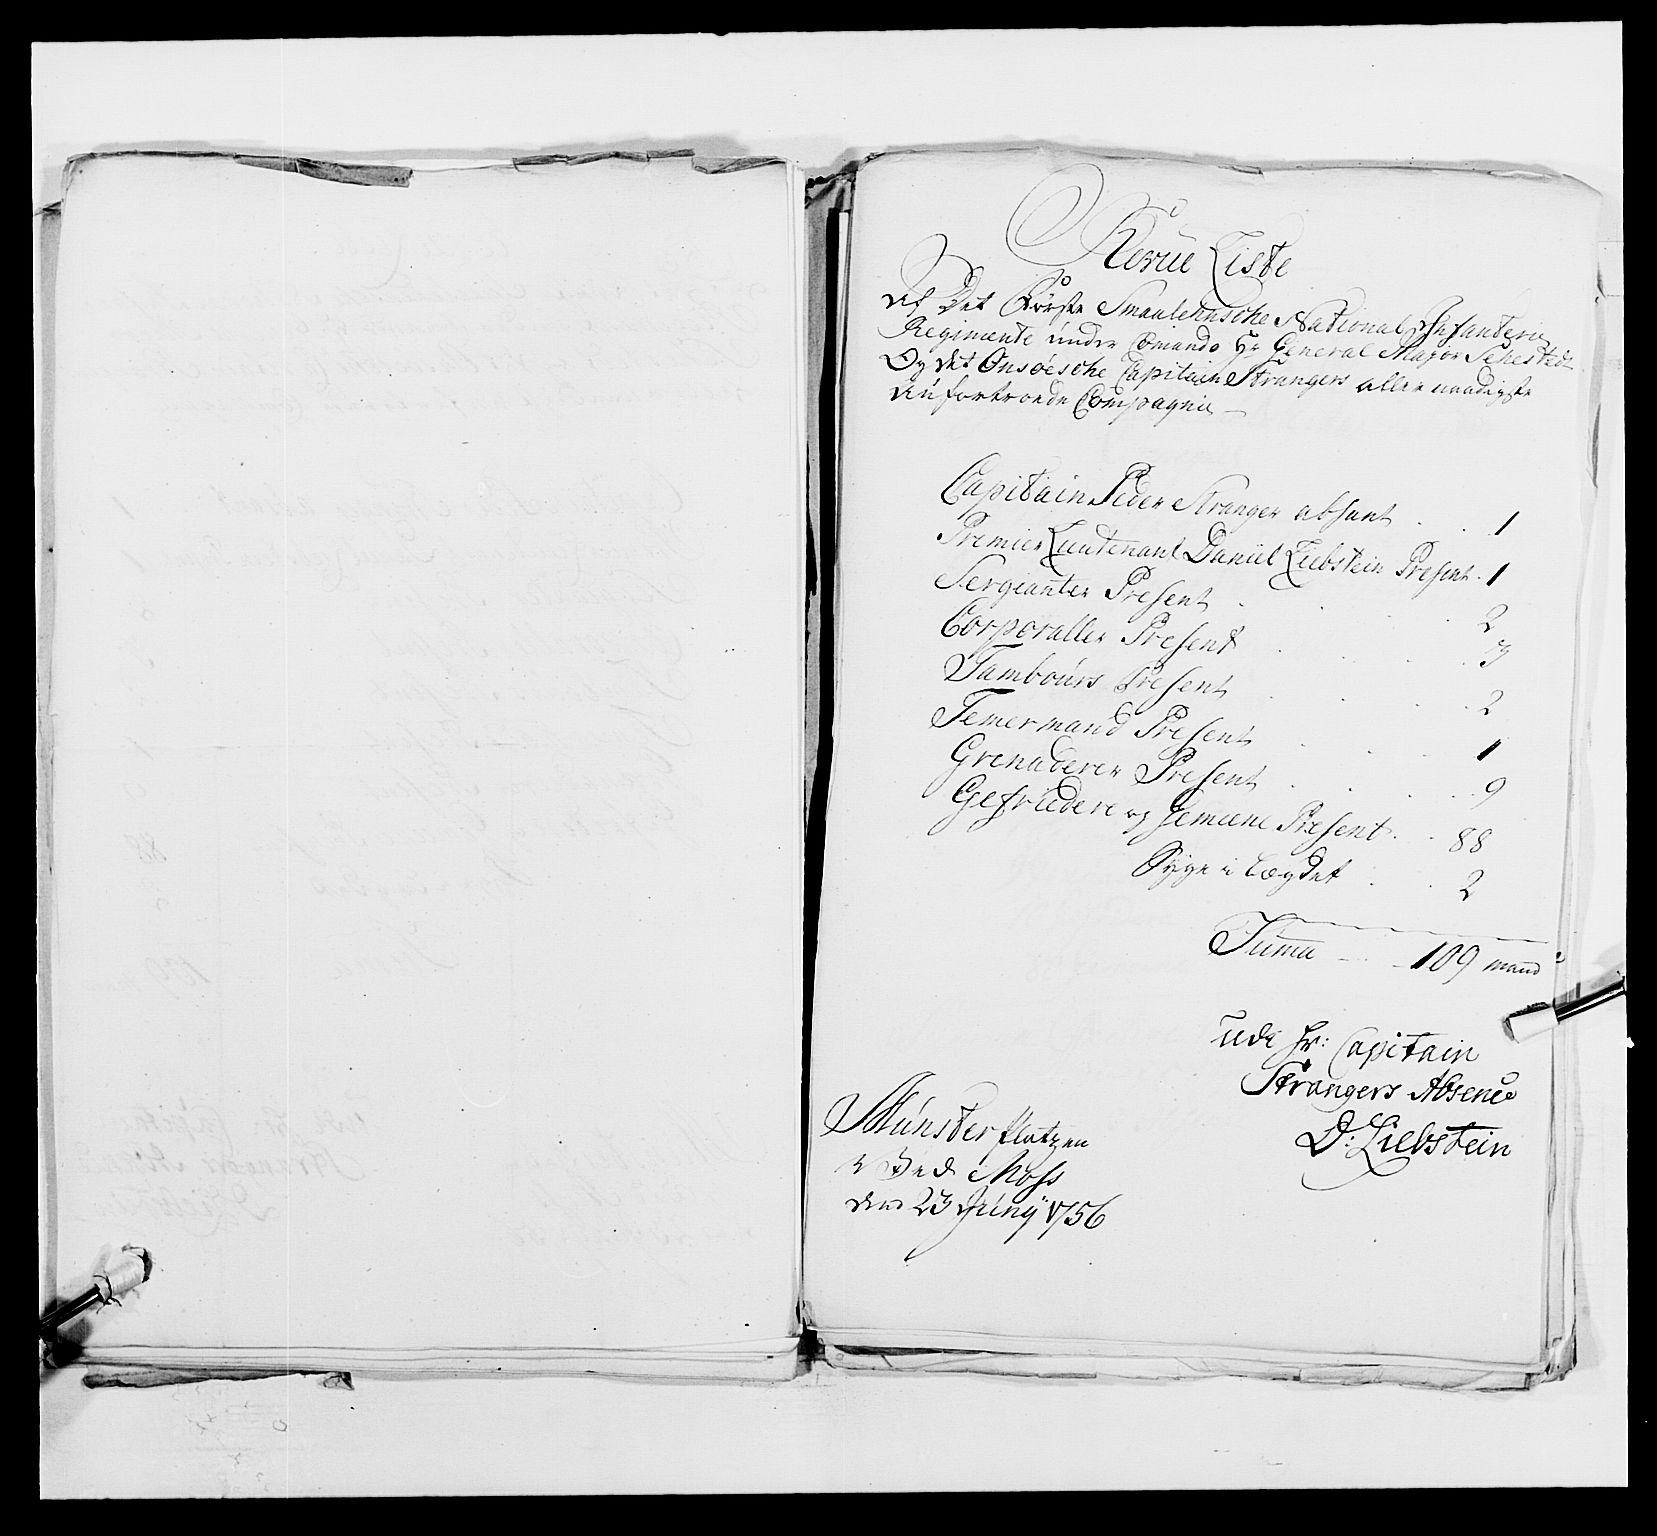 Revüe Liste
Af Det Første Smaalehnsche National Infanterie
Regimente under Comando Hr General Major Sehestedt
Og det Onsöesche Capitain Strangers aller naadigste
anfortroede Compagnie —
Capitain Peder Stranger absent . . 1
Premier Lieutenant Daniel Liebstein Present . 1
Sergianter Present . . . . 2
Corporaller Present . . . . 3
Tambours Present . . . . 2
Temermand Present . . . . 1
Grenaderer Present . . . . 9
Gefriedere og Gemeene Present . . 88
Syge i Lægdet . . 2
Suma — . — 109 mand
Udi Hr: Capitain
Strangers Absence
D: Liebstein
Münster Platzen
Ved Moss
den 23 Junÿ 1756